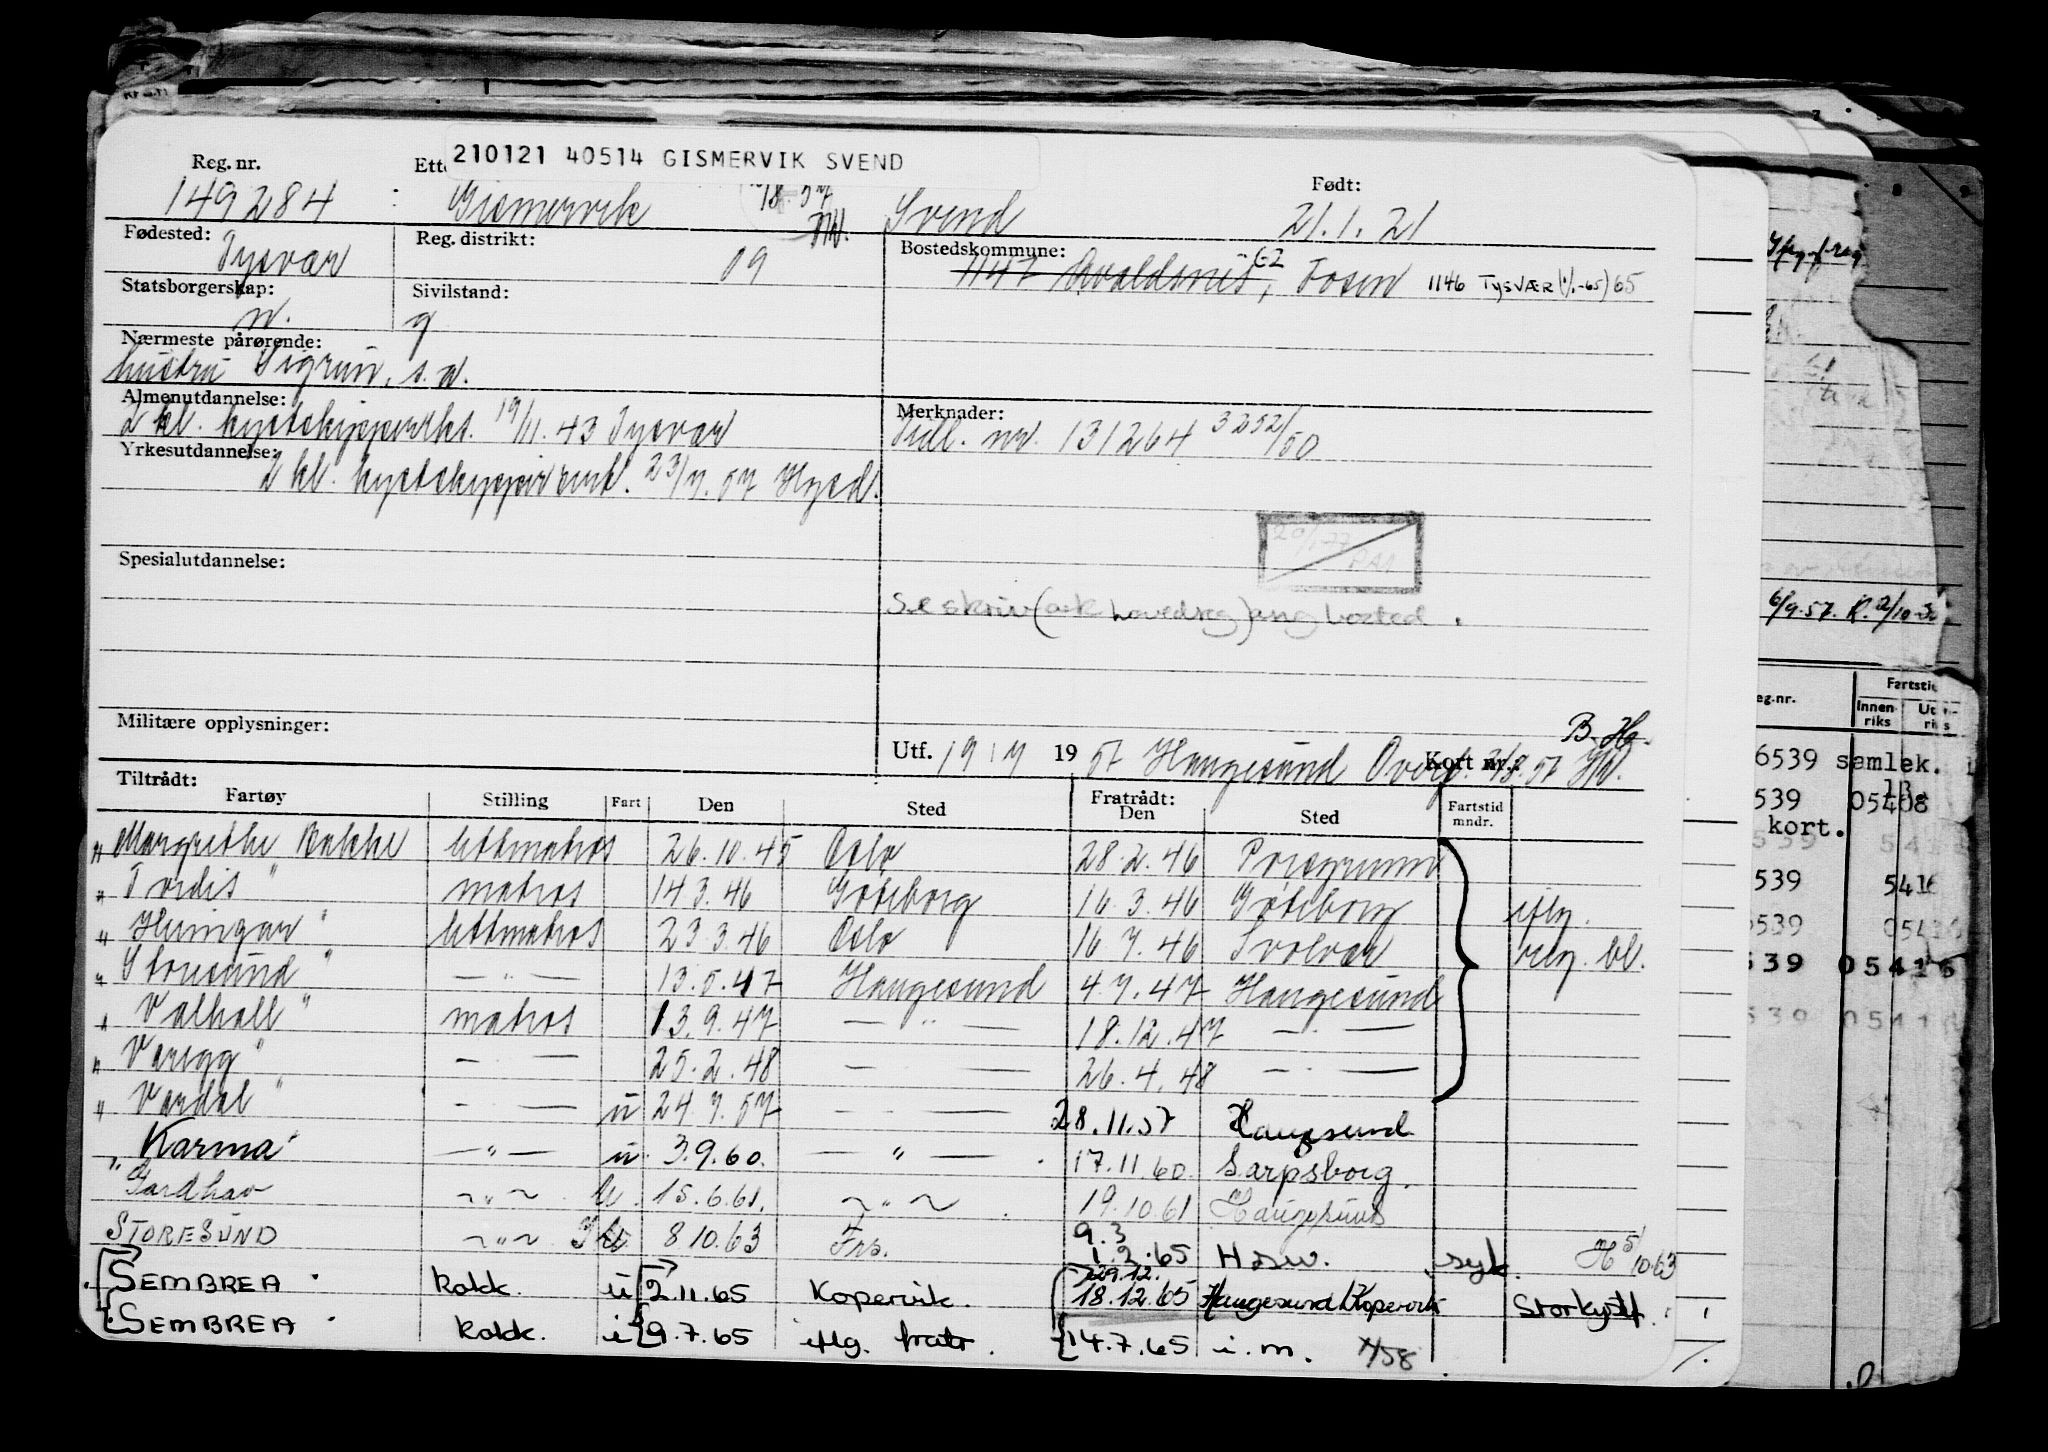 210121 40514 GISMERVIK SVEND
Reg. nr. Ette Født:
149284 Gismervik Svend 21.1.21
Fødested: Reg. distrikt: Bostedskommune:
Tysvær 09 1147 Avaldsnes, Fosen 1146 TYSVÆR (1/1-65) 65
Statsborgerskap: Sivilstand:
n. g
Nærmeste pårørende:
hustru Sigrun, s.a.
Almenutdannelse: Merknader:
2 kl. kystskippereks. 19/11.43 Tysvær Tidl. nr. 131264 3252/50
Yrkesutdannelse:
2 kl. kystskippersert. 23/7.57 Hgsd.
20/1-77
Spesialutdannelse:
Se skriv (ark hovedreg) ang bosted.
Militære opplysninger:
B. Hg.
Utf. 19/7 1957 Haugesund Overf. Kort nr.:
Tiltrådt: Fratrådt:
Fartøy Stilling Fart Den Sted Den Sted Fartstid mndr.
" Margrethe Bakke lettmatros 26.10.45 Oslo 28.2.46 Porsgrunn
" Tordis " matros 14.3.46 Gøteborg 16.3.46 Gøteborg iflg.
" Heimgar " lettmatros 23.3.46 Oslo 16.7.46 Svolvær reg. bl.
" Storesund " — " — 13.5.47 Haugesund 4.7.47 Haugesund
" Valhall " matros 13.9.47 — " — 18.12.47 — " —
" Varegg " — " — 25.2.48 — — 26.4.48 — " —
" Vardal " — " — u 24.7.57 — — 28.11.57 Haugesund
" Karma " — " — u 3.9.60. — " — 17.11.60. Sarpsborg.
Gardhav ~ " ~ U. 15.6.61. ~ " ~ 19.10.61 Haugesund
STORESUND ~ " ~ 8.10.63 Frs. 9.3 1.2.65 H.sw. syk. H 5/10.63
SEMBREA kokk. u 2.11.65 Kopervik. 29.12. 18.12.65 Haugesund Kopervik Storkyst.
SEMBREA kokk. i 9.7.65 iflg. fratr. 14.7.65 i.m. x/58
6/9.57. K. 2/10-
eg.nr. Fartstid
Innen-riks Ut
6539 samlek.
539 05408
kort.
539 5416
539
539 05416
539